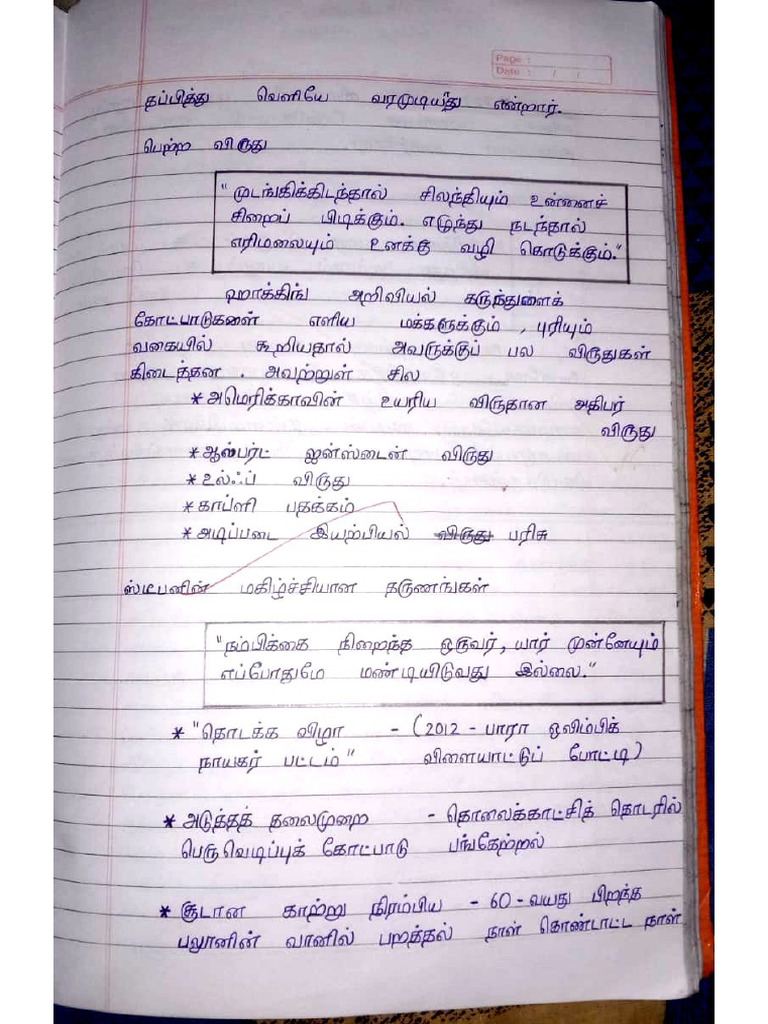 Page :
Date : / /
தப்பித்து வெளியே வரமுடியாது என்றார்.
பெற்ற விருது
"முடங்கிக்கிடந்தால் சிலந்தியும் உன்னைச்
சிறைப் பிடிக்கும். எழுந்து நடந்தால்
எரிமலையும் உனக்கு வழி கொடுக்கும்."
ஹாக்கிங் அறிவியல் கருந்துளைக்
கோட்பாடுகளை எளிய மக்களுக்கும் , புரியும்
வகையில் கூறியதால் அவருக்குப் பல விருதுகள்
கிடைத்தன . அவற்றுள் சில
* அமெரிக்காவின் உயரிய விருதான அதிபர்
விருது
* ஆல்பர்ட் ஐன்ஸ்டைன் விருது
* உல்ஃப் விருது
* காப்ளி பதக்கம்
* அடிப்படை இயற்பியல் விருது பரிசு
ஸ்டீபனின் மகிழ்ச்சியான தருணங்கள்
"நம்பிக்கை நிறைந்த ஒருவர், யார் முன்னேயும்
எப்போதுமே மண்டியிடுவது இல்லை."
* "தொடக்க விழா - (2012 - பாரா ஒலிம்பிக்
நாயகர் பட்டம்" விளையாட்டுப் போட்டி)
* அடுத்தத் தலைமுறை - தொலைக்காட்சித் தொடரில்
பெருவெடிப்புக் கோட்பாடு பங்கேற்றல்
* சூடான காற்று நிரம்பிய - 60 - வயது பிறந்த
பலூனின் வானில் பறத்தல் நாள் கொண்டாட்ட நாள்